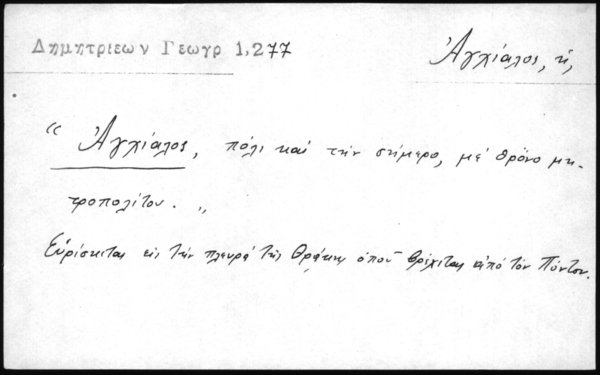 Δημητριεων Γεωγρ 1,277
Ἀγχίαλος, ἡ,
“ Ἀγχίαλος, πόλι καὶ τὴν σήμερο, μὲ θρόνο μη-
τροπολίτου. „
Εὑρίσκεται εἰς τὴν πλευρὰ τῆς Θράκης ὁποῦ βρέχεται ἀπὸ τὸν Πόντον.